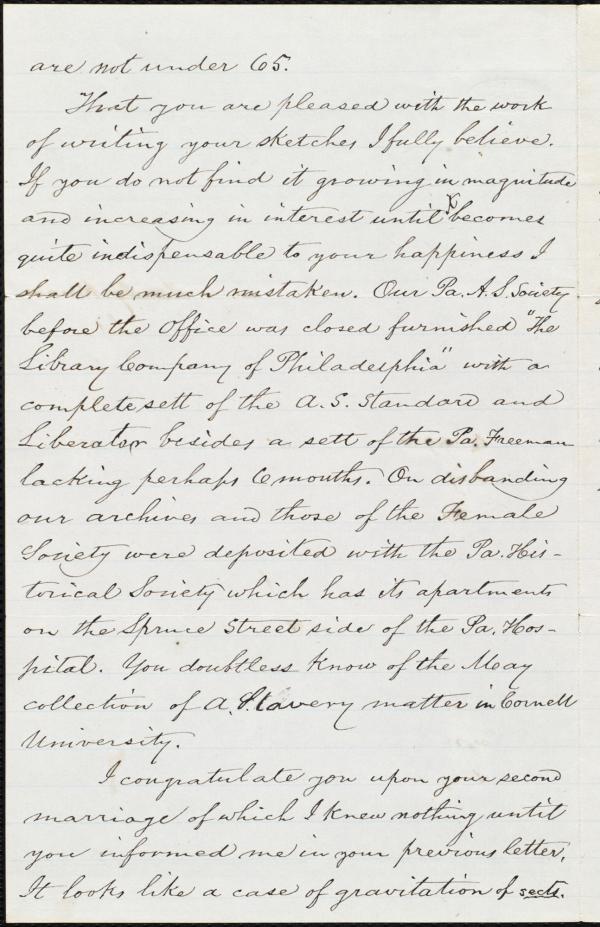 are not under 65.
That you are pleased with the work
of writing your sketches I fully believe.
If you do not find it growing in magnitude
and increasing in interest until x becomes
quite indispensable to your happiness I
shall be much mistaken. Our Pa. A. S. Society
before the Office was closed furnished "The
Library Company of Philadelphia" with a
complete sett of the A. S. Standard and
Liberator besides a sett of the Pa. Freeman
lacking perhaps 6 months. On disbanding
our archives and those of the Female
Society were deposited with the Pa. His-
torical Society which has its apartments
on the Spruce Street side of the Pa. Hos-
pital. You doubtless know of the May
collection of A. Slavery matter in Cornell
University.
I congratulate you upon your second
marriage of which I knew nothing until
you informed me in your previous letter.
It looks like a case of gravitation of sects.